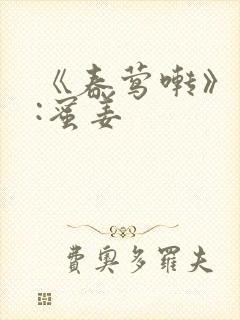 《春莺啭》
:蜜姜
费奥多罗夫